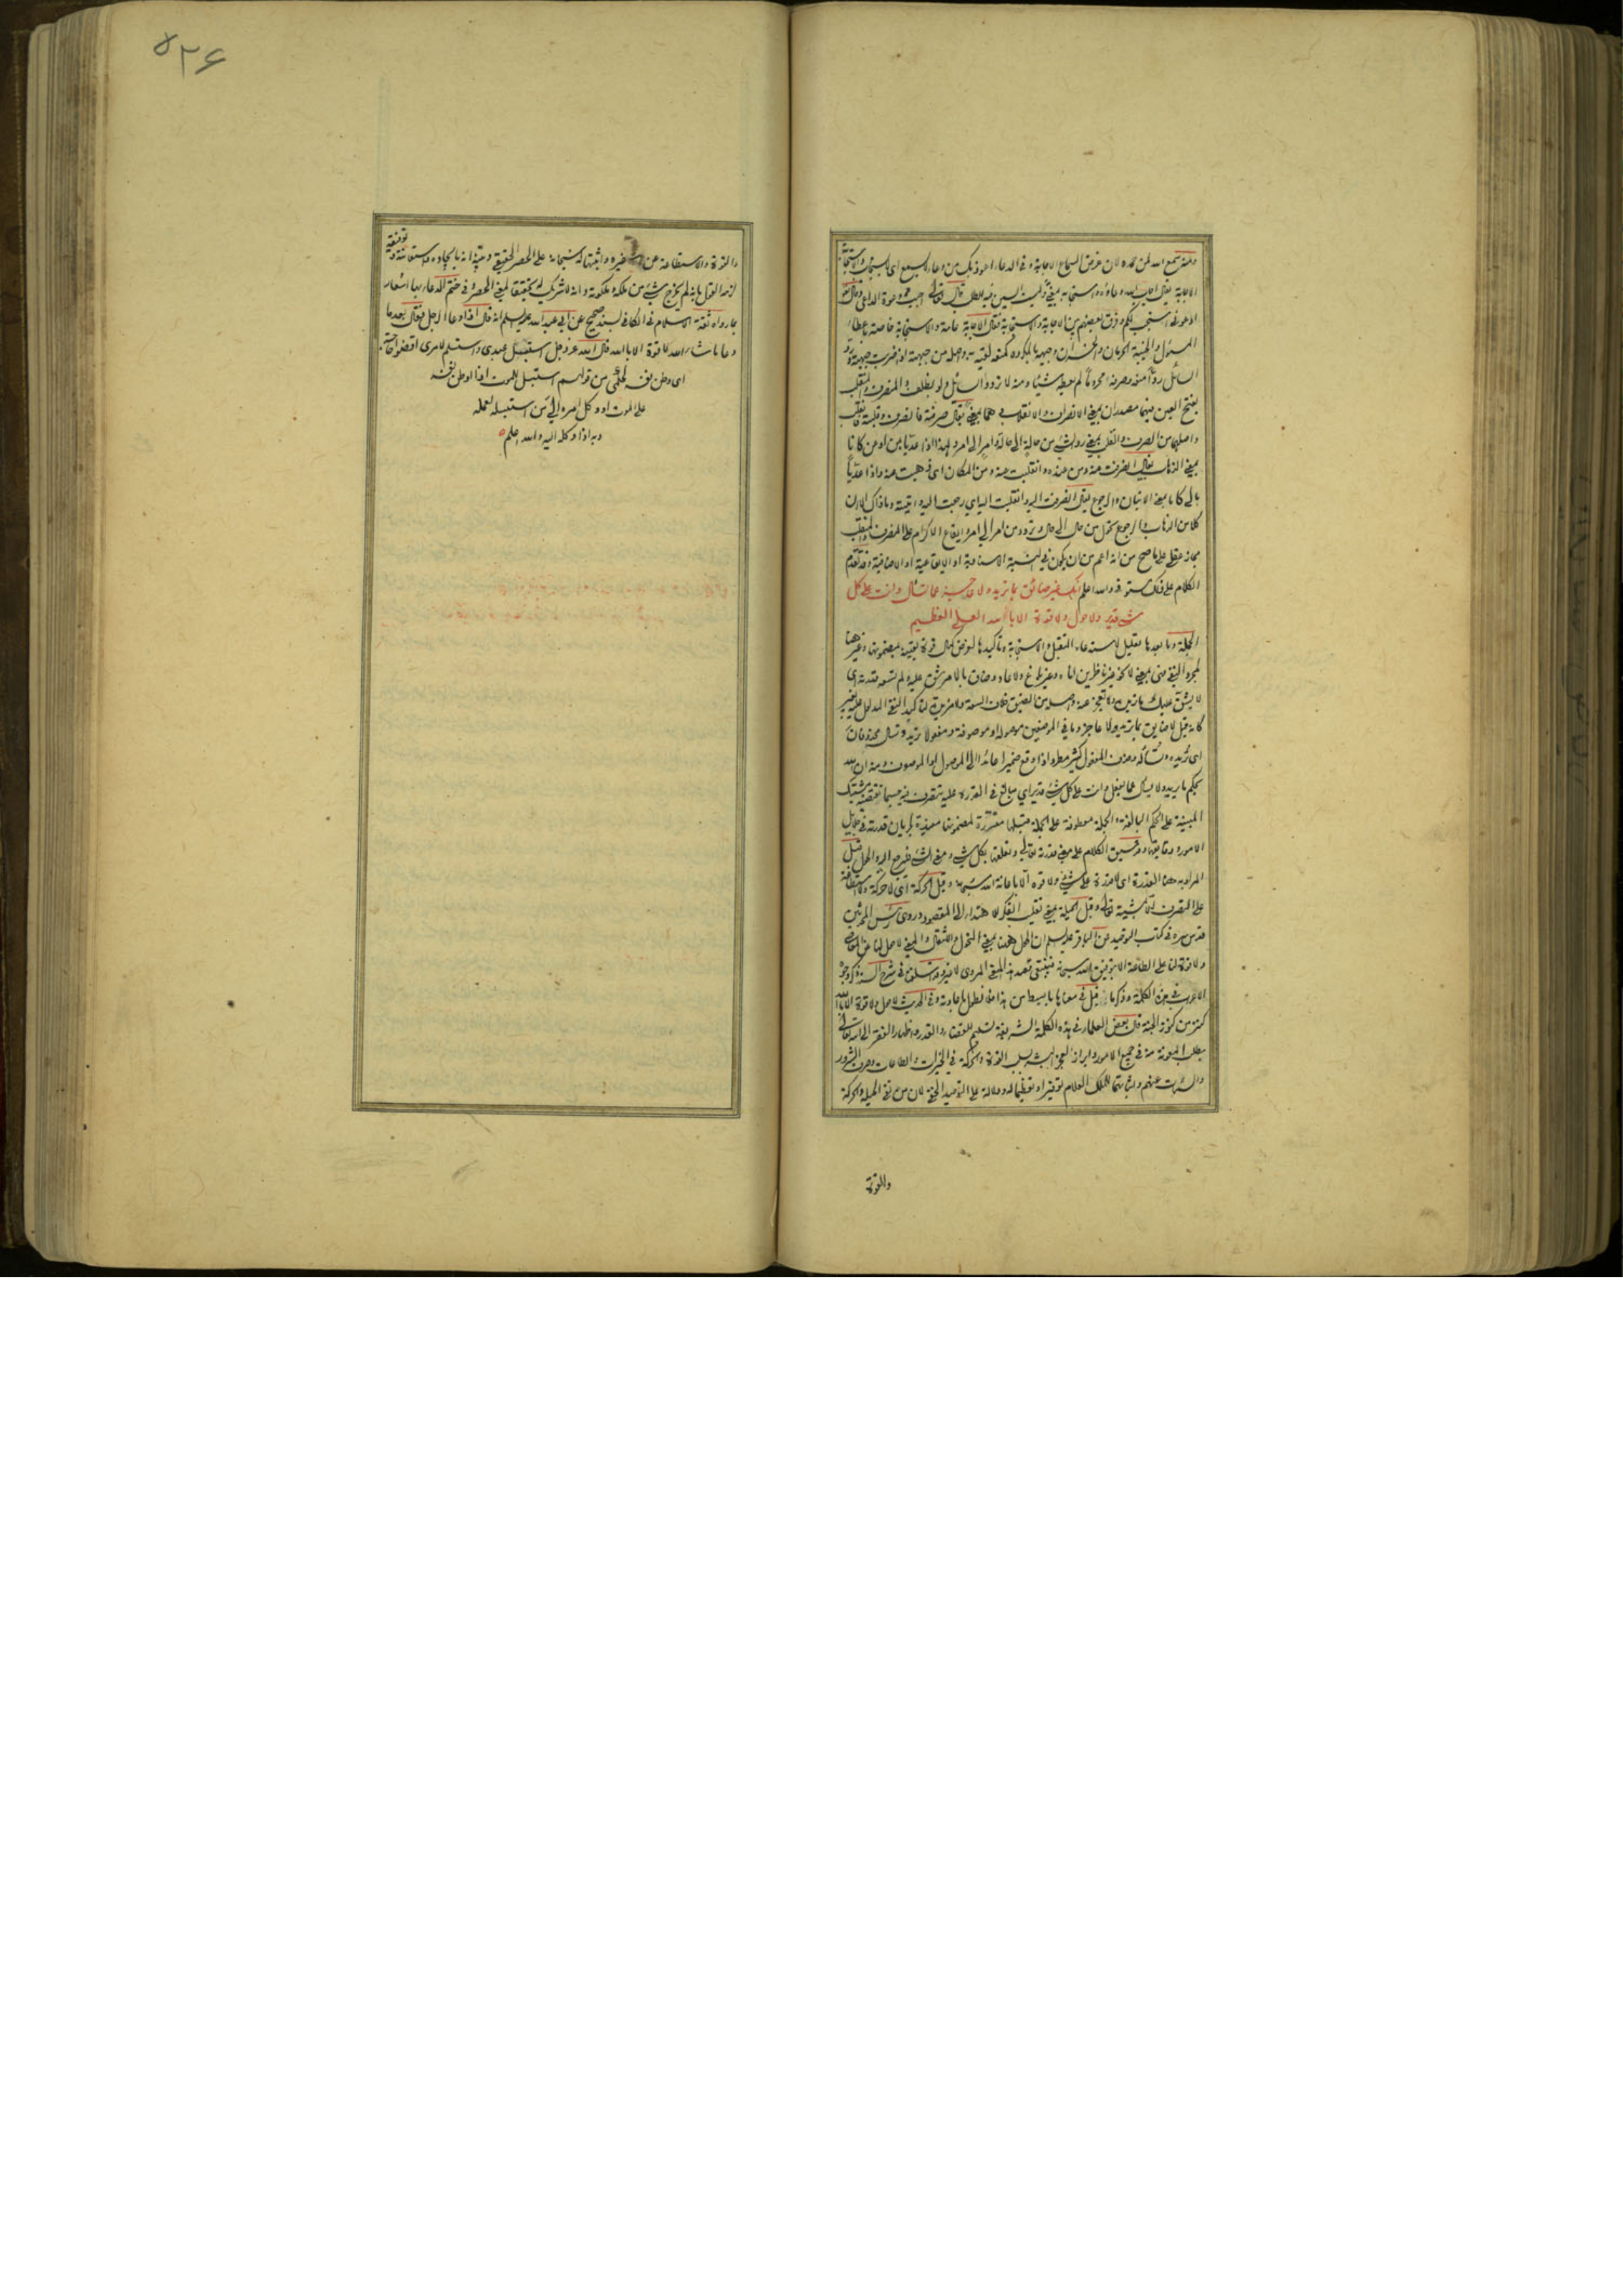 ومنه سمع الله لمن حمده لان غرض السماع الاجابة وفي الدعاء اعوذ بك من دعاء لا يسمع اى لا يستجاب والاستجابة
الاجابة يقال اجاب الله دعاءه واستجابه بمعنى وليست السين فيه للطلب قال تعالى اجيب دعوة الداعى وقال
ادعونى استجب لكم وفرق بعضهم بين الاجابة والاستجابة فقال الاجابة عامة والاستجابة خاصة باعطاء
المسئول والخيبة الحرمان والخسران وجبهه بالمكروه كمنعه لقيته به واصله من جبهته اذا ضربت جبهته ورد
السائل ردا منعه وصرفه محروما لم يعطه شيئا ومنه لا تردوا السائل ولو بظلف والمنصرف والمنقلب
بفتح العين فيهما مصدران بمعنى الانصراف والانقلاب وهما بمعنى يقال صرفته فانصرف وقلبته فانقلب
واصلهما من الصرف والقلب بمعنى رد الشئ من حالة الى حالة وامر الى امر ولهذا اذا عديا بمن او عن كانا
بمعنى الذهاب يقال انصرفت عنه ومن عنده وانقلبت عنه ومن المكان اى ذهبت عنه واذا عديا
بالى كانا بمعنى الاتيان والرجوع يقال انصرفت اليه وانقلبت اليه اي رجعت اليه واتيته وما ذاك الا لان
كلا من الذهاب والرجوع تحول من حال الى حال وتردد من امر الى امر وايقاع الاكرام على المنصرف والمنقلب
مجاز عقلى على ما صح من انه اعم من ان يكون في النسبة الاسنادية او الايقاعية او الاضافية وقد تقدم
الكلام على ذلك مستوفى والله اعلم انك غير ضائق بما تريد ولا عاجز عما تسأل وانت على كل
شئ قدير ولا حول ولا قوة الا بالله العلي العظيم
الجملة وما بعدها تعليل لاستدعاء التقبل والاستجابة وتأكيدها لغرض كمال قوة يقينه بمضمونها وغير هنا
لمجرد النفي فهى بمعنى لا نحو غير ناظرين اناه وغير باغ ولا عاد وضاق بالامر شق عليه ولم تسعه قدرته اى
لا يشق عليك ما تريد ولا تعجز عنه واصله من الضيق خلاف السعة ولا مزيدة لتأكيد النفي المدلول عليه بغير
كانه قيل لا ضايق بما تريد ولا عاجز وما في الموضعين موصولة او موصوفة ومفعولا تريد وتسأل محذوفان
اى تريده وتسأله وحذف المفعول كثير مطرد اذا وقع ضميرا عائدا الى الموصول او الموصوف ومنه ان الله
يحكم ما يريد ولا يسأل عما يفعل وانت على كل شئ قدير اي مبالغ في القدرة عليه تتصرف فيه حسبما تقتضيه مشيتك
المبنية على الحكم البالغة والجملة معطوفة على الجملة قبلها مقررة لمضمونها مفيدة لجريان قدرته في جلايل
الامور ودقايقها وقد سبق الكلام على معنى قدرته تعالى وتعلقها بكل شئ ومعنى الشئ فليرجع اليه والحول قيل
المراد به هنا القدرة اى لا قدرة على شئ ولا قوة الا باعانة الله سبحانه وقيل الحركة اى لا حركة ولا استطاعة
على التصرف الا بمشيئة الله تعالى وقيل الحيلة بمعنى تقليب الفكر للاهتداء الى المقصود وروى رئيس المحدثين
قدس سره في كتاب التوحيد عن الباقر عليه السلم ان الحول هنا بمعنى التحول والانتقال والمعنى لا حول لنا عن المعاصى
ولا قوة لنا على الطاعة الا بتوفيق الله سبحانه فينبغى قصد هذا المعنى المروى لا غير وقد سلف في شرح السند ذكر وجوه
الاعراب في هذه الكلمة وذكر ما قيل في معناها بابسط من هذا فلا نطول باعادته وفي الحديث لا حول ولا قوة الا بالله
كنز من كنوز الجنة قال بعض العلماء في هذه الكلمة الشريفة تسليم للقضاء والقدر واظهار الفقر الى الله تعالى
بطلب المعونة منه في جميع الامور وابراز لعجز البشر بسلب القوة والحركة في الخيرات والطاعات وصرف الشرور
والسيئات عنهم واثباتها للملك العلام توقيرا وتعظيما له ودلالة على التوحيد الخفى لان من نفى الحيلة والحركة
والقوة
۵۲۶
والقوة والاستطاعة عن غيره واثبتها له سبحانه على الحصر الحقيقي وتيقن انه بايجاده واستعانته وتوفيقه
لزمه القول بانه لم يخرج شئ من ملكه وملكوته وانه لا شريك له تحقيقا لمعنى الحصر وفى ختم الدعاء بها اشعار
بما رواه ثقة الاسلام في الكافى بسند صحيح عن ابي عبد الله عليه السلم انه قال اذا دعا الرجل فقال بعد ما
دعا ما شاء الله لا قوة الا بالله قال الله عز وجل استبسل عبدى واستسلم لامرى اقضوا حاجته
اى وطن نفسه لحكمى من قولهم استبسل للموت اذا وطن نفسه
على الموت او وكل امره الي من استبسله لعمله
وبه اذا وكله اليه والله اعلم